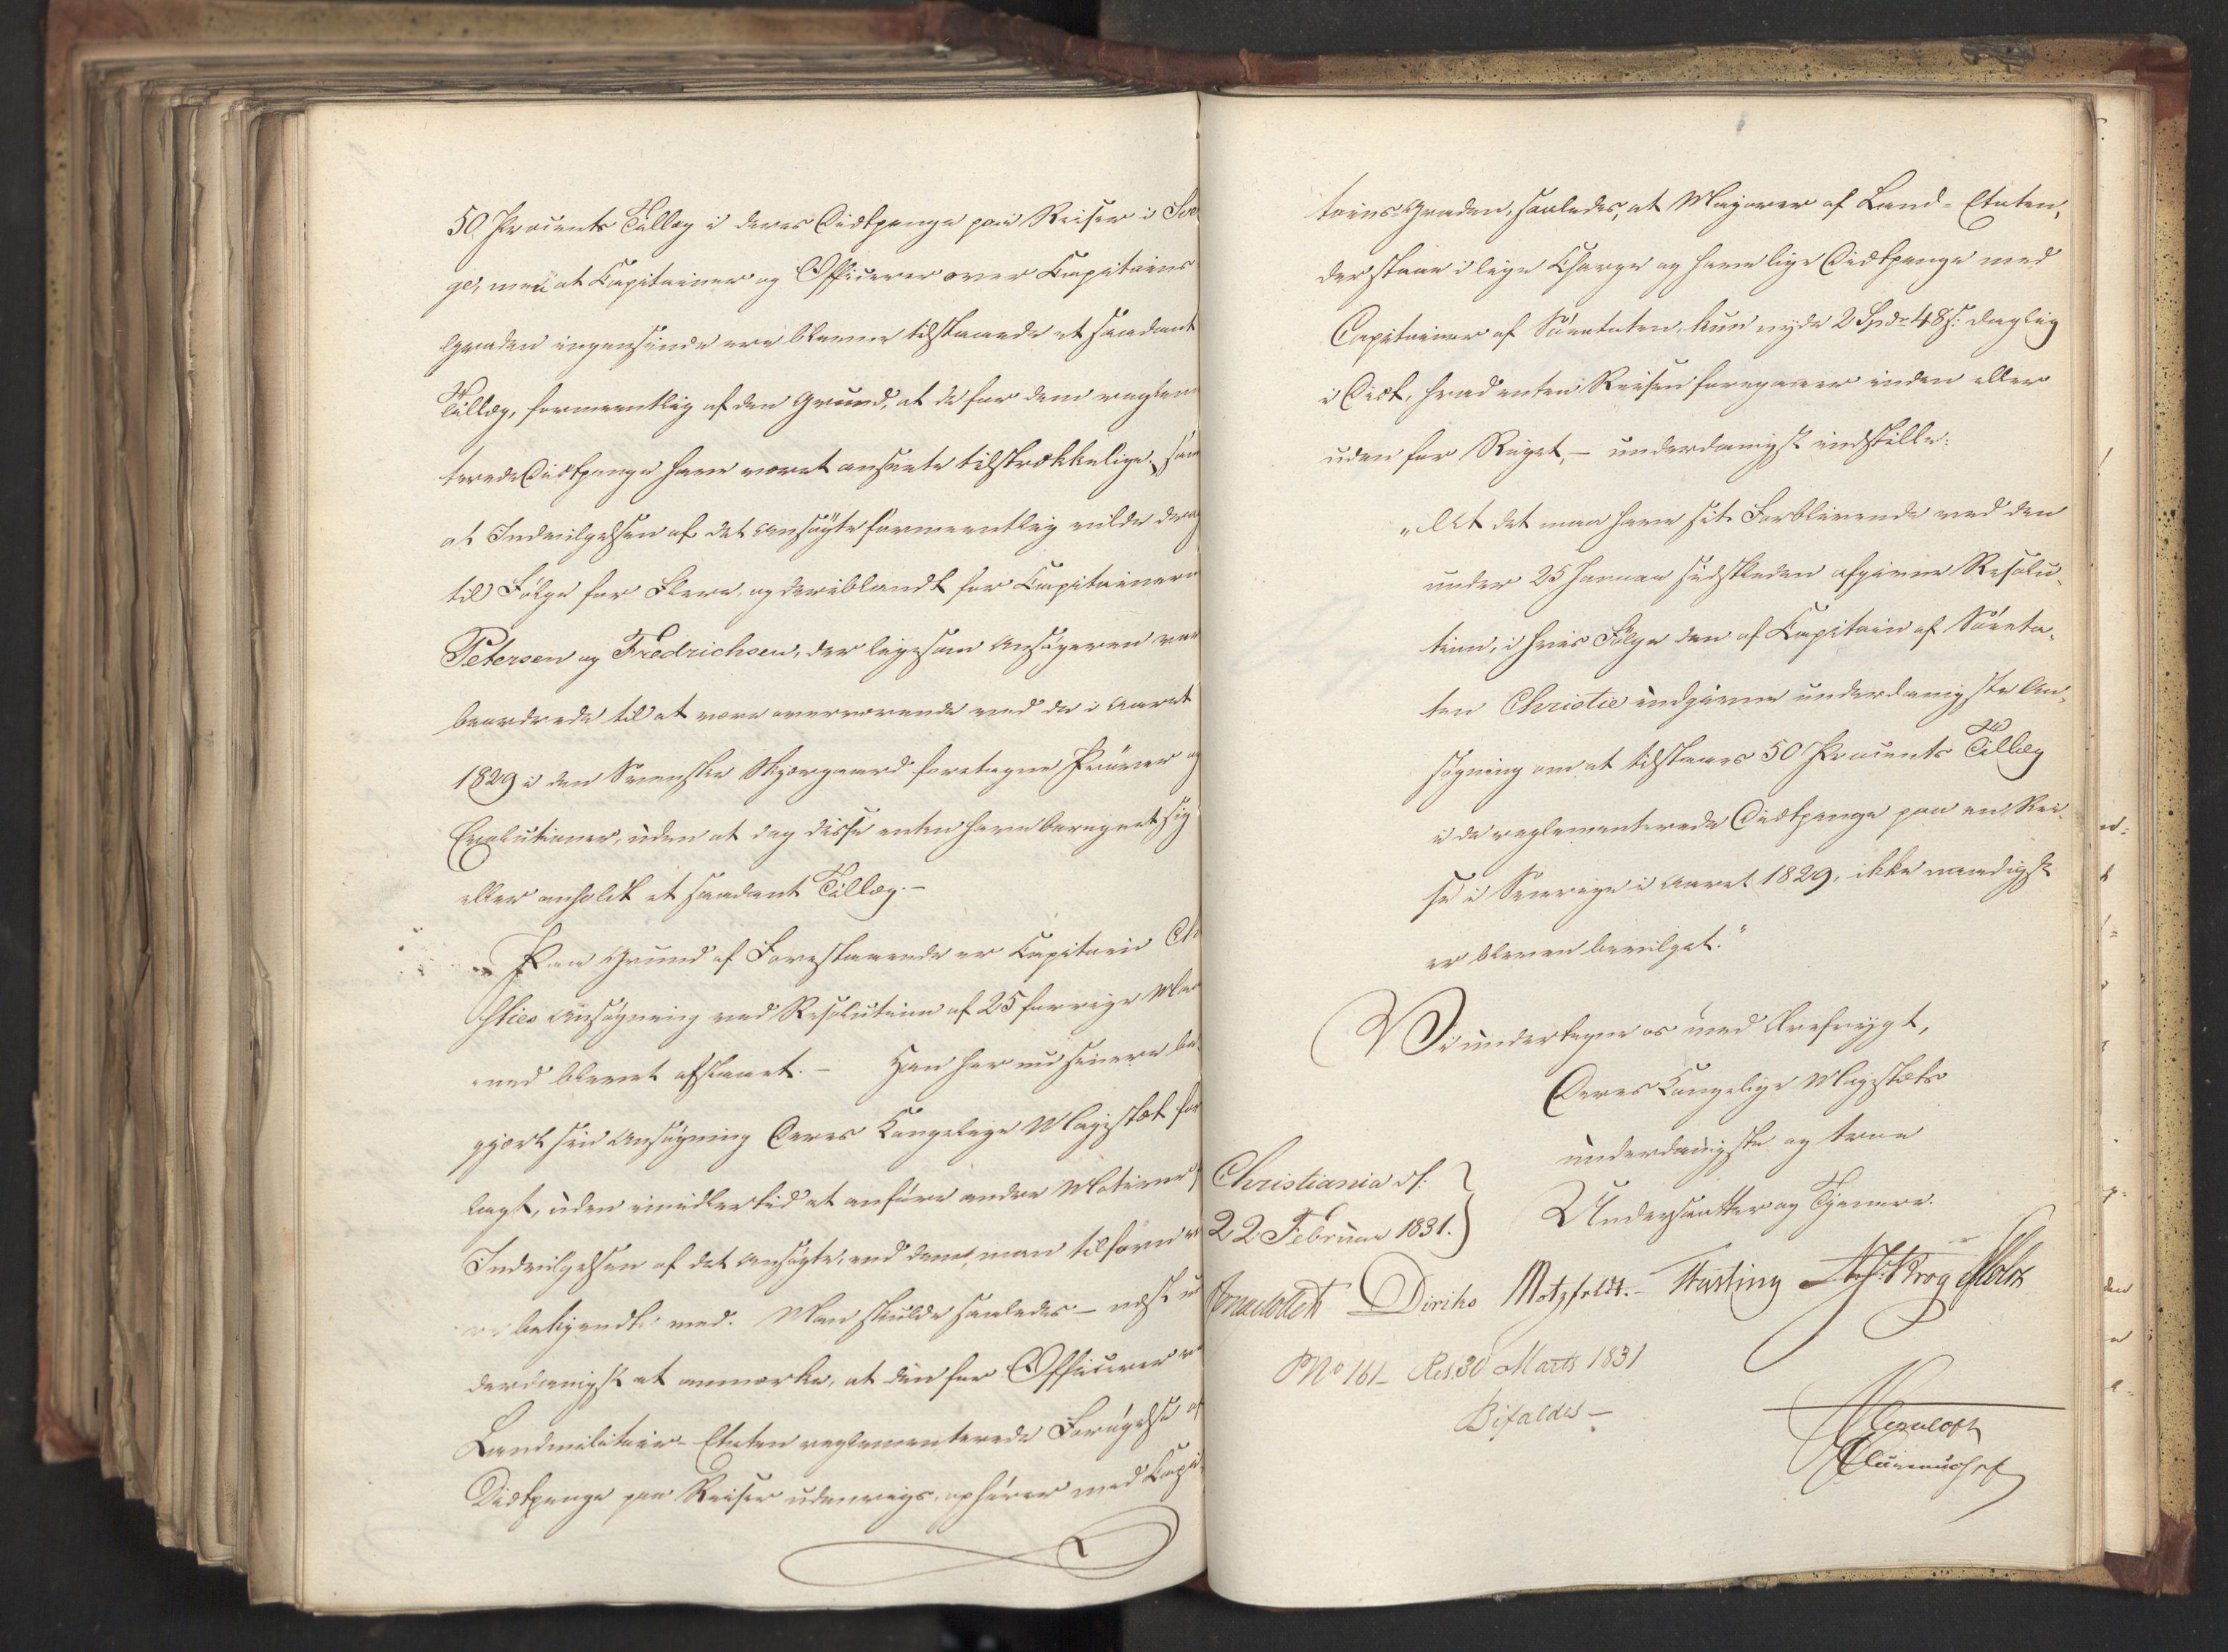 50 Procents Tillæg i deres Diætpenge paa Reiser i Sve
ge, men at Capitainer og Officerer over Capitains
Graden ingensinde ere blevne tilstaaede et saadant
Tillæg, formeentlig af den Grund, at de for dem reglem
terede Diætpenge have været ansete tilstrækkelige, sam
at Indvilgelsen af det Ansøgte formeentlig vilde drag
til Følge for Flere, og deriblandt for Capitainern
Petersen og Fredrichsen, der ligesom Ansøgeren var
beordrede til at være overværende ved de i Aaret
1829 i den Svenske Skjærgaard foretagne Prøver og
Evolutioner, uden at dog disse enten have beregnet sig
eller anholdt et saadant Tillæg.—
Paa Grund af Forestaaende er Capitain Ch
sties Ansøgning ved Resolution af 25 forrige Maa
ned blevet afslaaet.— Han har nu senere be-
gjært sin Ansøgning Deres Kongelige Majestæt fore
lagt, uden imidlertid at anføre andre Motiver f
Indvilgelsen af det Ansøgte, end dem, man tilforn v
bekjendt med. Man skulde saaledes— næst un
derdanigst at anmærke, at den for Officerer v
Landmilitair-Etaten reglementerede Forøgelse af
Diætpenge paa Reiser udenrigs, ophører med Capi-
tains-Graden, saaledes, at Majorer af Land-Etaten,
der staae i lige Charge og have lige Diætpenge med
Capitainer af Søeetaten, kun nyde 2 Spd. 48 s: daglig
i Diæt, hvad enten Reisen foregaaer inden eller
uden for Riget,— underdanigst indstille:
„At det maa have sit Forblivende ved den
under 25 Januar sidstleden afgivne Resolu-
tion, i hvis Følge den af Capitain af Søeeta-
ten Christie indgivne underdanigste An-
søgning om at tilstaaes 50 Procents Tillæg
i de reglementerede Diætpenge paa en Rei-
se i Sverige i Aaret 1829, ikke naadigst
er bleven bevilget.“
Vi undertegne os med Ærefrygt,
Deres Kongelige Majestæts
underdanigste og troe
Undersaatter og Tjenere.
Christiania d:
22 Februar 1831.
Diriks Motzfeldt.— Fasting Krog Holst
No 161— Res. 30 Marts 1831
Bifaldes—